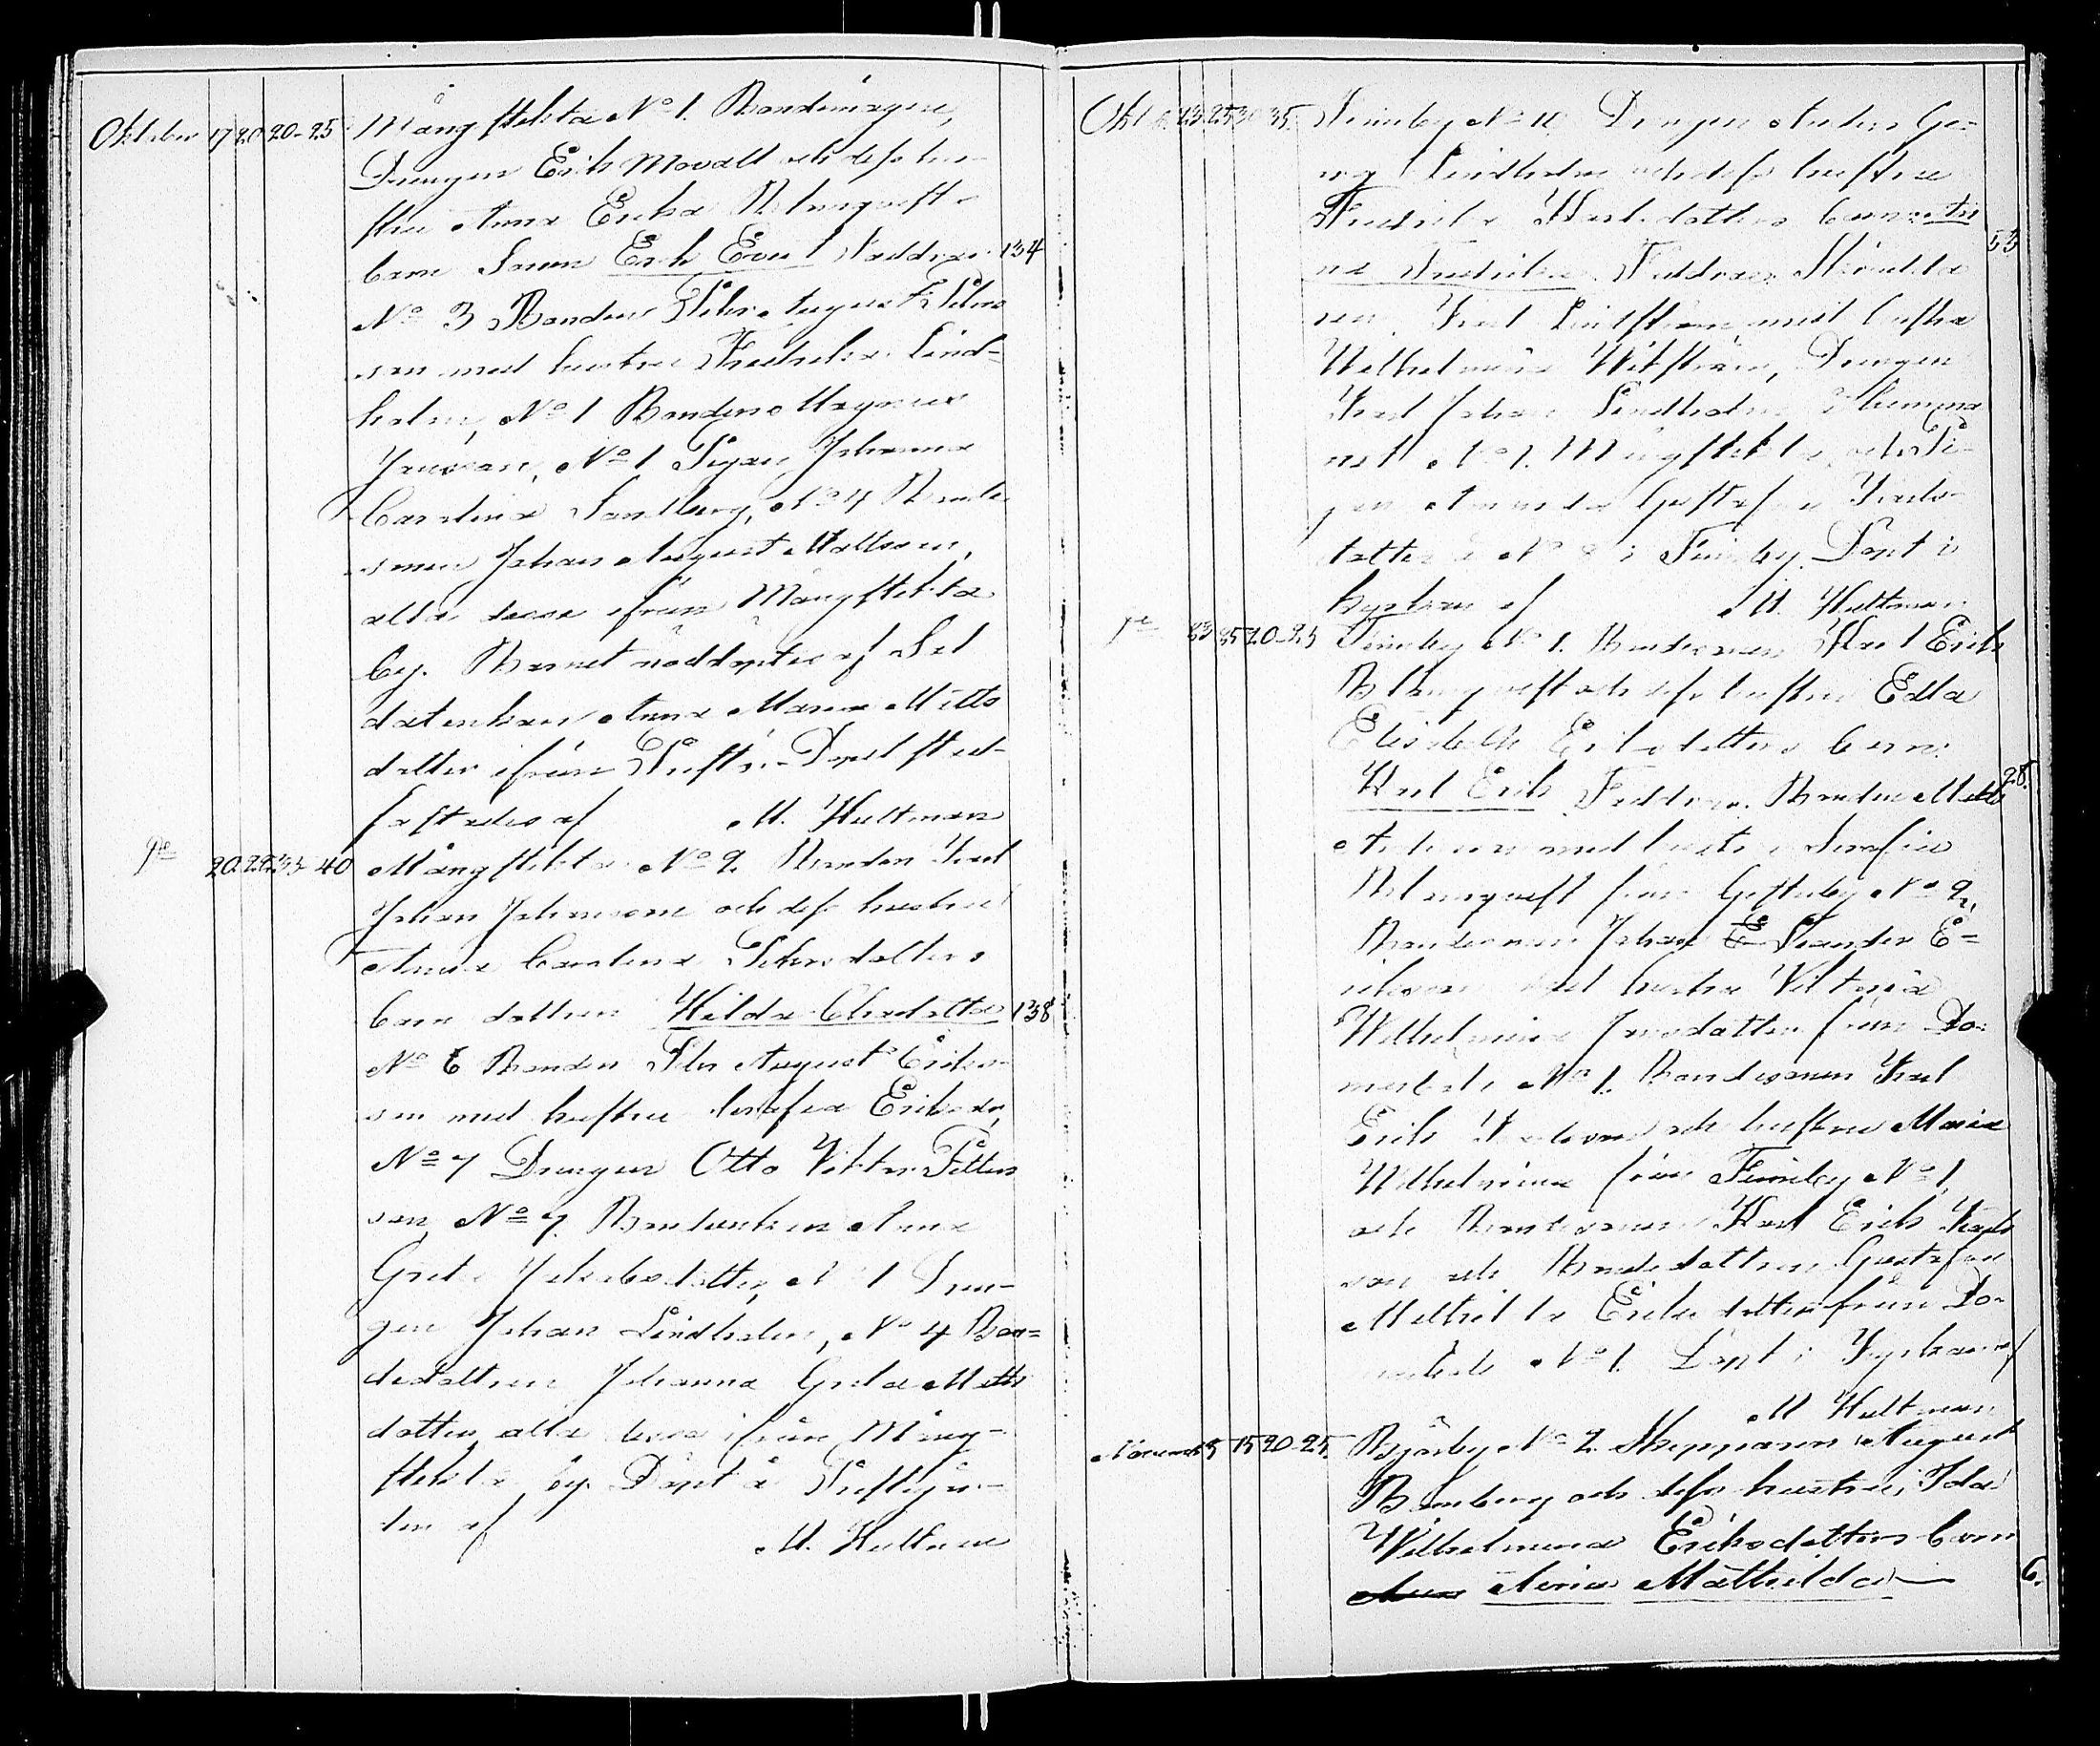 Oktober 17 20 20-25 Mångstekta No 1. Bondemågen,
Drengen Erik Movall och dess hu-
stru Anna Erika Blomqvists
barn Sonen Erik Evert Faddrar 134
No 3 Bonden Petter August Petters
son med hustru Fredrika Lind-
holm, No 1 Bonden Magnus
Jansson, No 1 Pigan Johanna
Carolina Sandberg, No 4 Bonde
sonen Johan August Mattsson,
alla dessa ifrån Mångstekta
by. Barnet nöddöptes af Sol
datenkan Anna Maria Matts
dotter ifrån Dopet stad-
fästades af M. Hultman
20 22 35-40 Mångstekta No 2. Bonden Karl
Johan Johansson och dess hustru
Anna Carolina Pettersdotters
barn dottren Hilda Charlotta 138
No 6 Bonden Petter August Eriks-
son med hustru Serafia Eriksdr,
No 7 Drengen Otto Viktor Petters
son, No 7. Bondeenkan Anna
Greta Jakobsdotter, No 1 Dren-
gen Johan Lindholm, No 4 Bon=
dedottren Johanna Greta Matts
dotter, alla dessa ifrån Mång-
stekta by. Döpt å Prestgår-
den af
M. Hultman
Okt 23 25 30-35 Finnby No 11 Drengen Anders Ge-
org Lindholm och dess hustru
Fredrika Karlsdotters barn
Fredrika. Faddrar. 53
Karl med hustru
Wilhelmina Wikström, Drengen
Karl Johan Lindholm
No 1. Mångstekta, och Pi-
gan Amanda Gustafva Karls-
dotter No 8 i Finnby. Döpt i
Kyrkan af M. Hultman
23 25 20-25 Finnby No 1. Bondesonen Karl Erik
Blomqvist och dess hustru Edla
Elisabeth Eriksdotters barn:
Karl Erik Faddrar. Bonden Matts 28.
Andersson med hustru Serafia
Blomqvist från Gesterby No 2,
Bondesonen Johan Leander E=
riksson med hustru Viktoria
Wilhelmina Jansdotter från Do-
marböle No 1. Bondesonen Karl
Erik Karlsson och hustru Maria
Wilhelmina från Finnby No 1,
och Bondesonen Karl Erik Karls
son och Bondedottren Gustafva
Mathilda Eriksdotter från Do-
marböle No 1. Döpt i Kyrkan af
M Hultman
November 5 15 20-25 Bjärby No 2. Skepparen August
Blomberg och dess hustru, Ida
Wilhelmina Eriksdotters barn
Anna Mathilda 6.